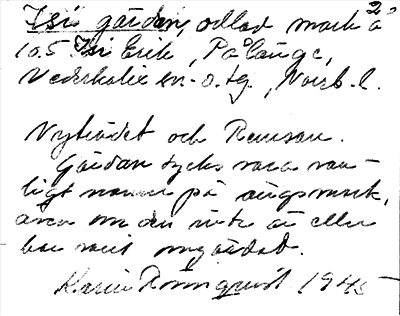 2.
Isis gärdan, odlad mark å
10.5 Isi Erik, Pålänge,
Nederkalix sn. o. tg., Norrb. l.
Nyträdet och Remsan.
Gärdan tycks vara van-
ligt namn på ängsmark,
även om den inte är eller
har varit ingärdat.
Karin Rönnquist 1945